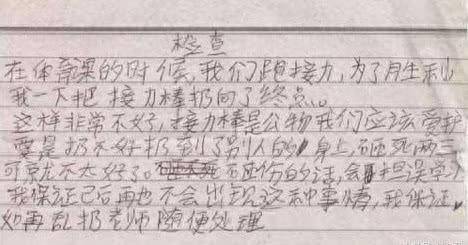 检查
在体育课的时候,我们跑接力,为了月生利
我一下把接力棒扔向了终点。。
这样非常不好,接力棒是公物我们应该爱护
要是扔不好扔到了别人的身上,砸死两三
可就不太好了。砸伤的话,会耽误学习
我保证已后再也不会出现这种事情,我保证,
如再乱扔老师随便处理